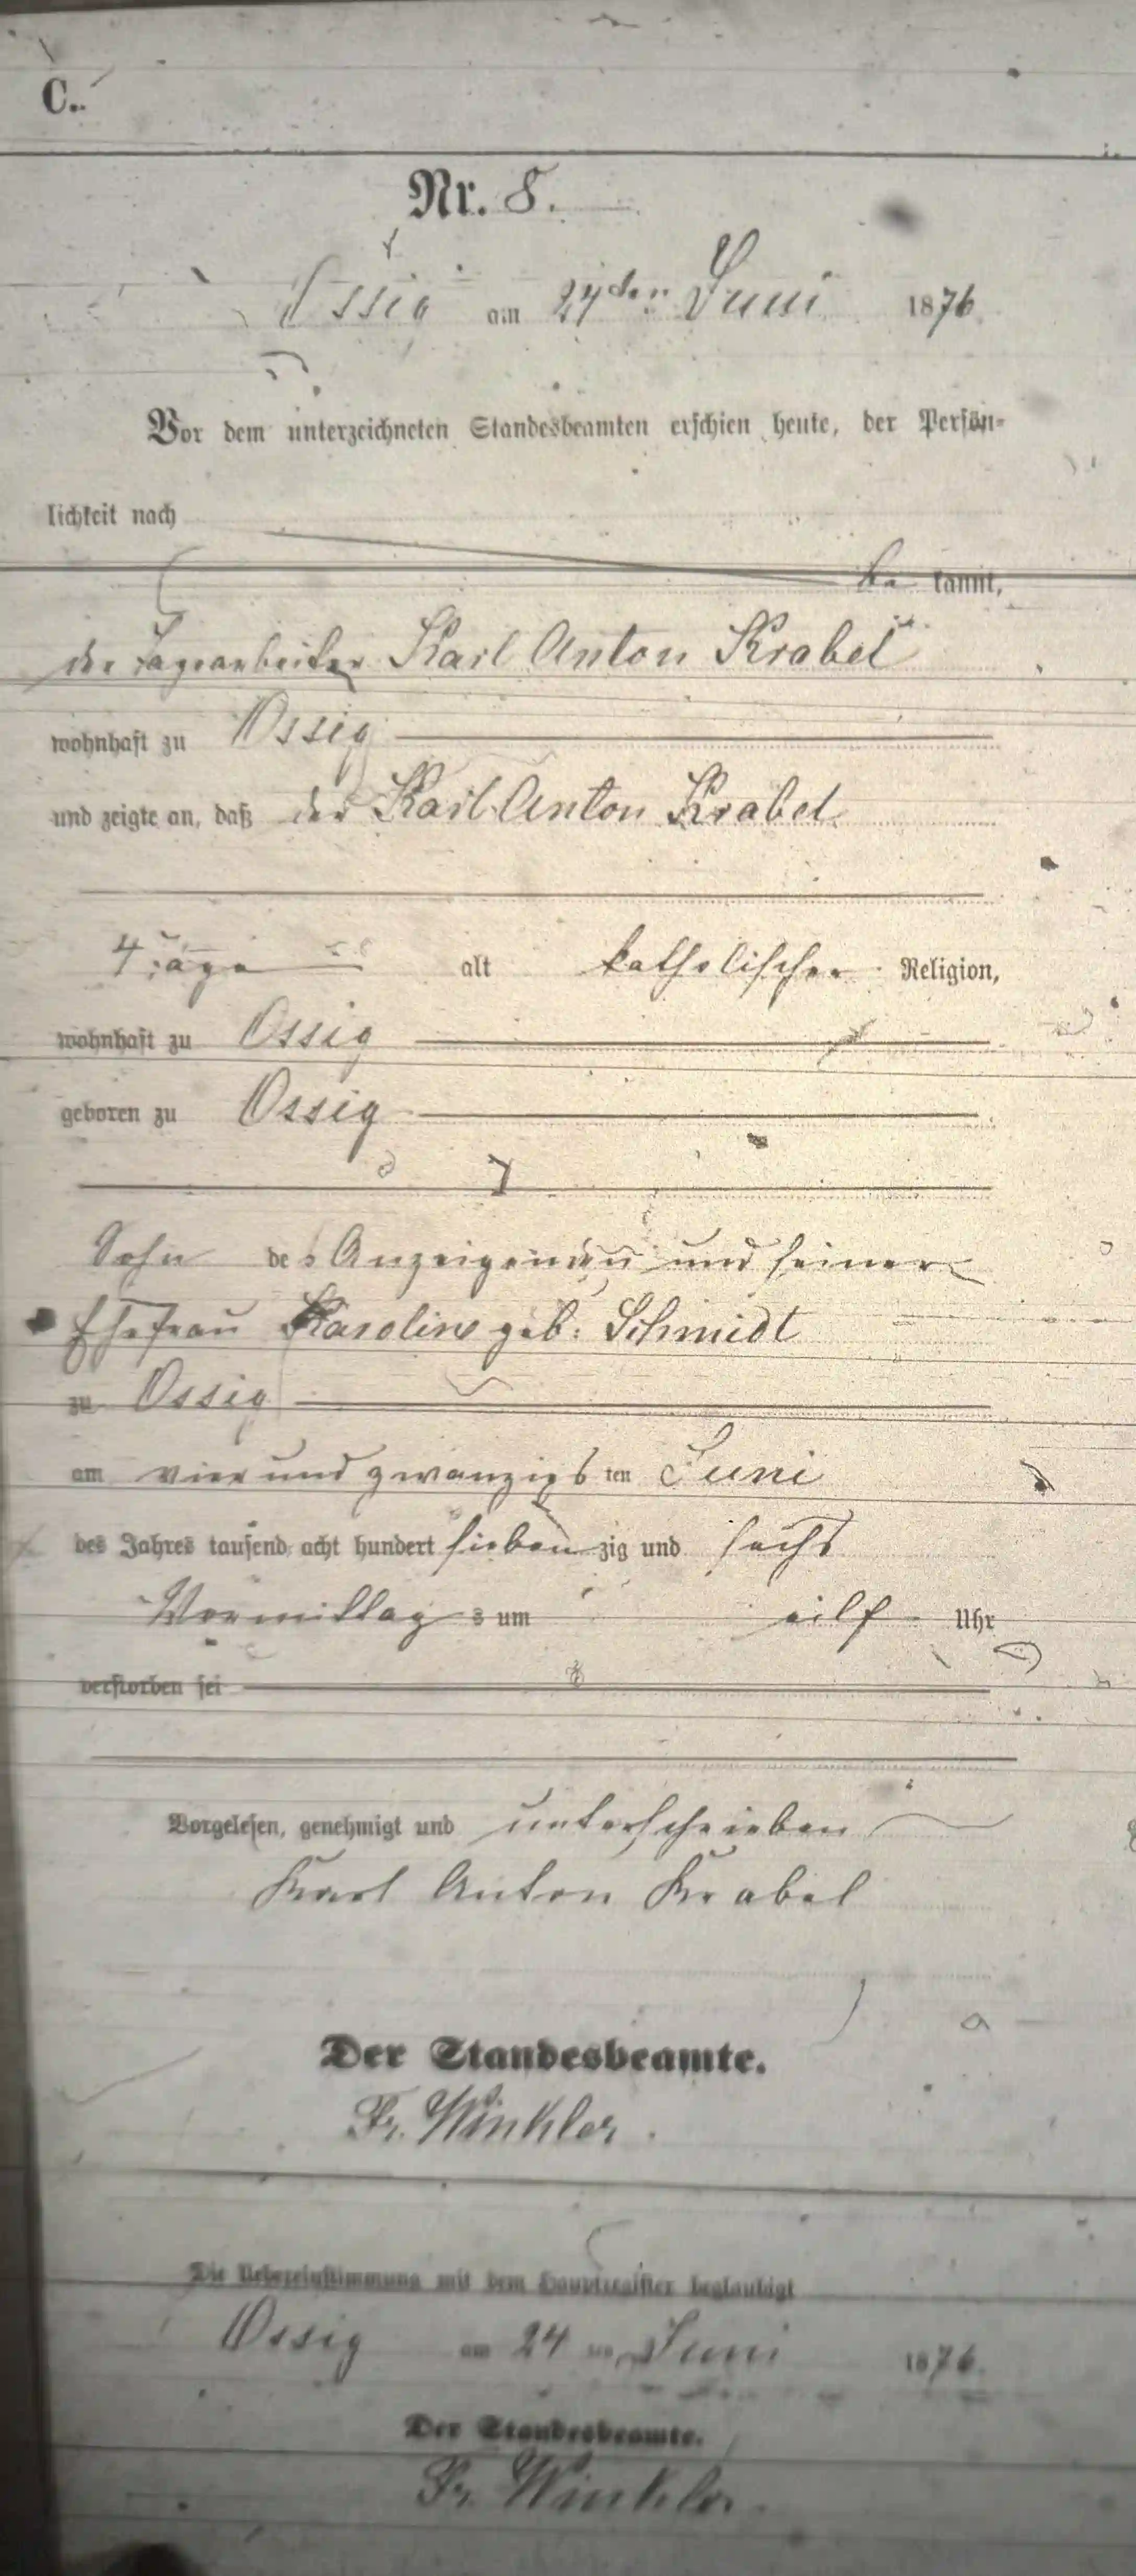 C.
Nr. 8.
Ossig am 24ten Juni 1876
Vor dem unterzeichneten Standesbeamten erschien heute, der Persön-
lichkeit nach
be kannt,
der Tagearbeiter Karl Anton Krabel
wohnhaft zu Ossig
und zeigte an, daß der Karl Anton Krabel
4 Tage alt katholischer Religion,
wohnhaft zu Ossig
geboren zu Ossig
Sohn des Anzeigenden und seiner
Ehefrau Karoline geb: Schmidt
zu Ossig
am vier und zwanzigs ten Juni
des Jahres tausend acht hundert sieben zig und sechs
Vormittag s um eilf Uhr
verstorben sei
Vorgelesen, genehmigt und unterschrieben
Karl Anton Krabel
Der Standesbeamte.
Fr. Winkler.
Die Uebereinstimmung mit dem Hauptregister beglaubigt
Ossig am 24 ten Juni 1876.
Der Standesbeamte.
Fr. Winkler.